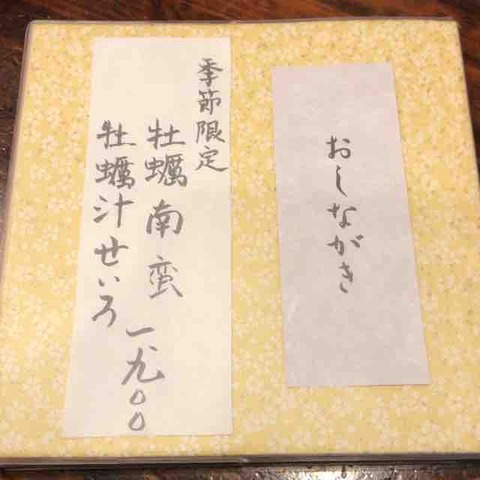 おしながき
季節限定
牡蠣南蛮
牡蠣汁せいろ
一、九〇〇